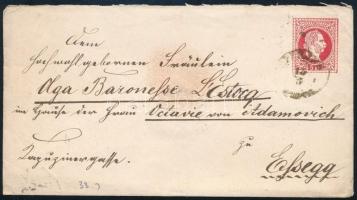 Dem
Hochwolgebornen Fräulein
Olga Baronesse L'Estocq
im Hause der Frau Octavie von Adamovich
Kapuzinergasse.
zu
Essegg